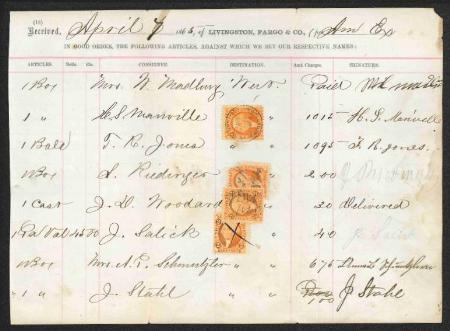 (10)
Received, April 7 1865, of LIVINGSTON, FARGO & CO., Am Ex
IN GOOD ORDER, THE FOLLOWING ARTICLES, AGAINST WHICH WE SET OUR RESPECTIVE NAMES:
ARTICLES. CONSIGNEE DESTINATION. Am't Charges. SIGNATURE.
1 Box Mrs. W. Wadbury West. Paid
1 " H. S. Manville " 10 15 H. S. Manvill
1 Bale T. R. Jones " 10 95 T. R. Jones.
1 Box L. Riedinger 2 00
1 Cast J. D. Woodard 20 Delivered
1 Pa Val 45 00 J. Salick " " 40
1 Box Mrs. A. L. Schmutzler " " 675
" 1 " J. Stahl " " 100 J Stahl